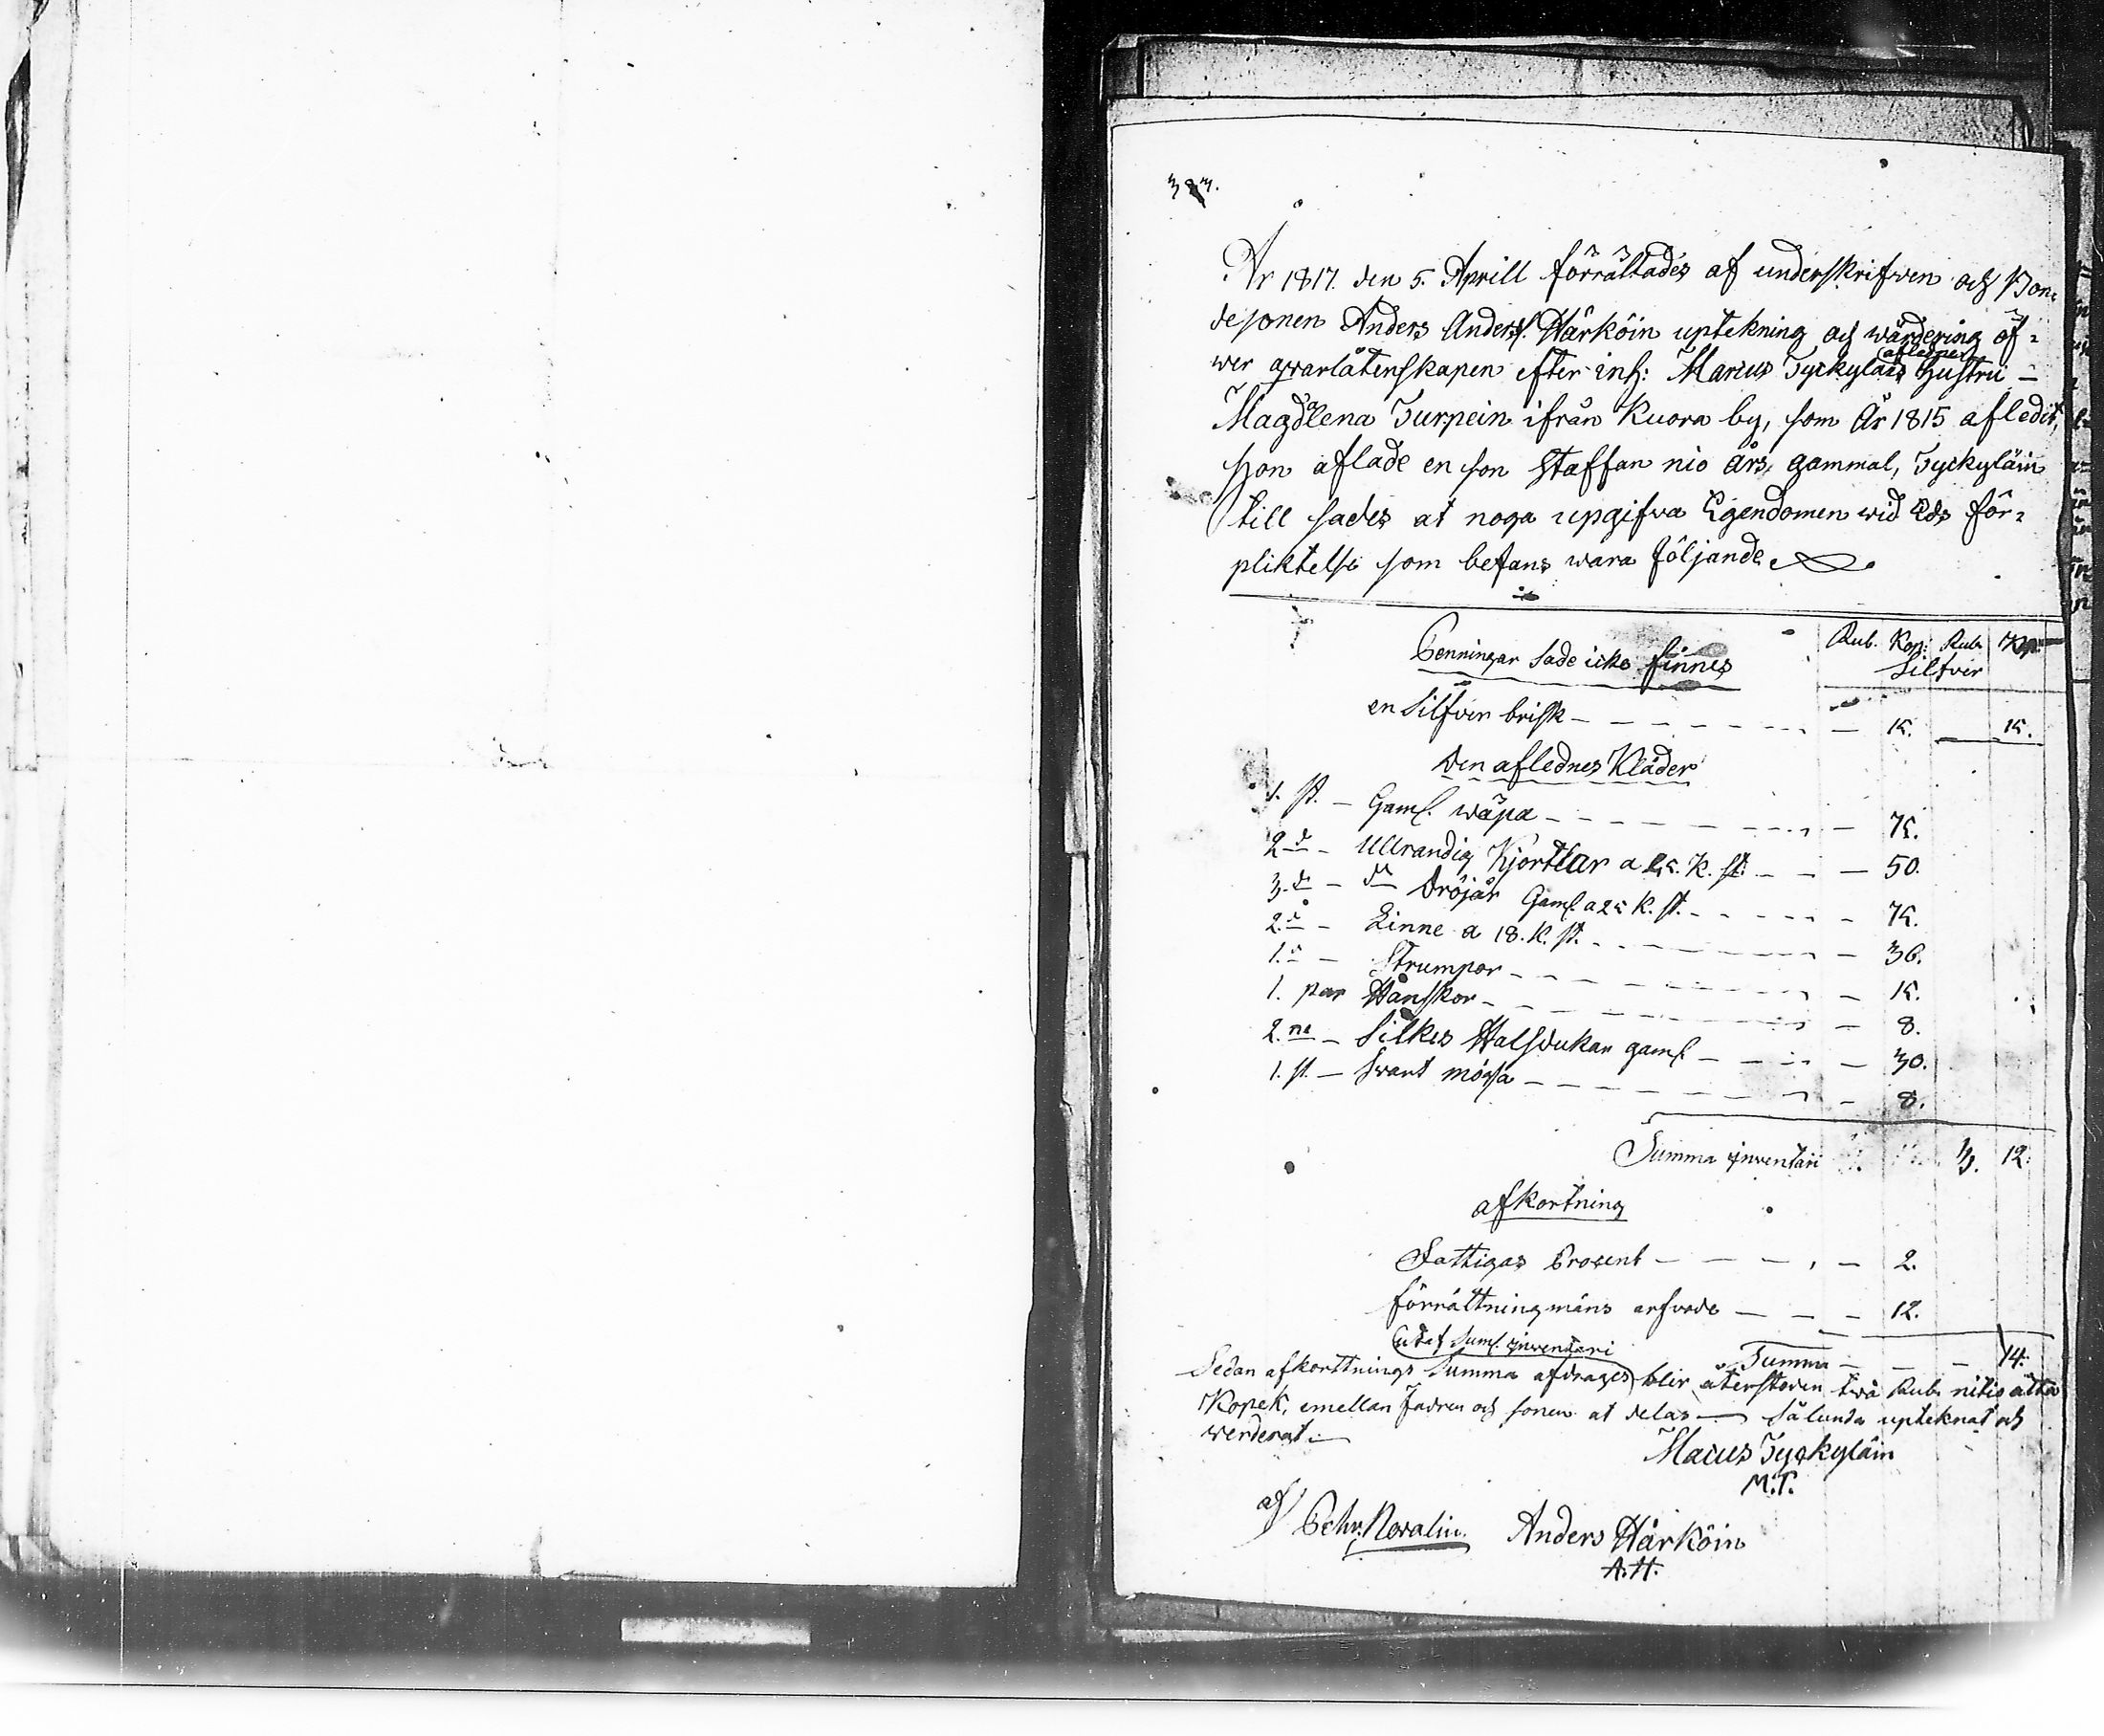 383.
År 1817. den 5. Aprill förrättades af underskrifwen och Bon-
desonen Anders Anderss. Härköin uptekning och wärdering öf-
wer qvarlåtenskapen efter inh: Marcus Tyckyläins afledne hustru -
Magdalena Turpein ifrån Kuora by, som År 1815 afledit,
hon aflade en son Staffan nio års gammal, Tyckyläin
till sades at noga upgifva Egendomen wid Eds för-
pliktelse som befans wara följande
Penningar sade icke finnes Rub. Kop: Rub. Kop:
Silfver
en Silfver brisk - - - 15. 15.
Den aflednes Kläder
1. st. - Gaml. wäpa - - - 75.
2 d - Ullrandig Kjortlar a 25. K. st. - - - 50.
3. d - d Dröjår Gaml. a 25 K. st. - - - 75.
2. d - Linne a 18. K. st. - - - 36.
1. d - Strumpor - - - 15.
1. par Hanskor - - - 8.
2. ne - Silkes Halsdukar gaml - - - 30.
1. st. - Swart mössa - - - 8.
Summa inventari 3. 12.
afkortning
Fattigas Procent - - - 2.
förrättningmäns arfvode - - - 12.
Summa - - - 14.
Utaf Sum. inventari
Sedan afkorttnings Summa afdrages blir återstoden två Rub. nitio åtta
Kopek, emellan Fadren och sonen at delas - Sålunda upteknat och
werderat.
Marcus Tyckyläin
M.T.
af Pehr Novalin. Anders Härköin
A.H.